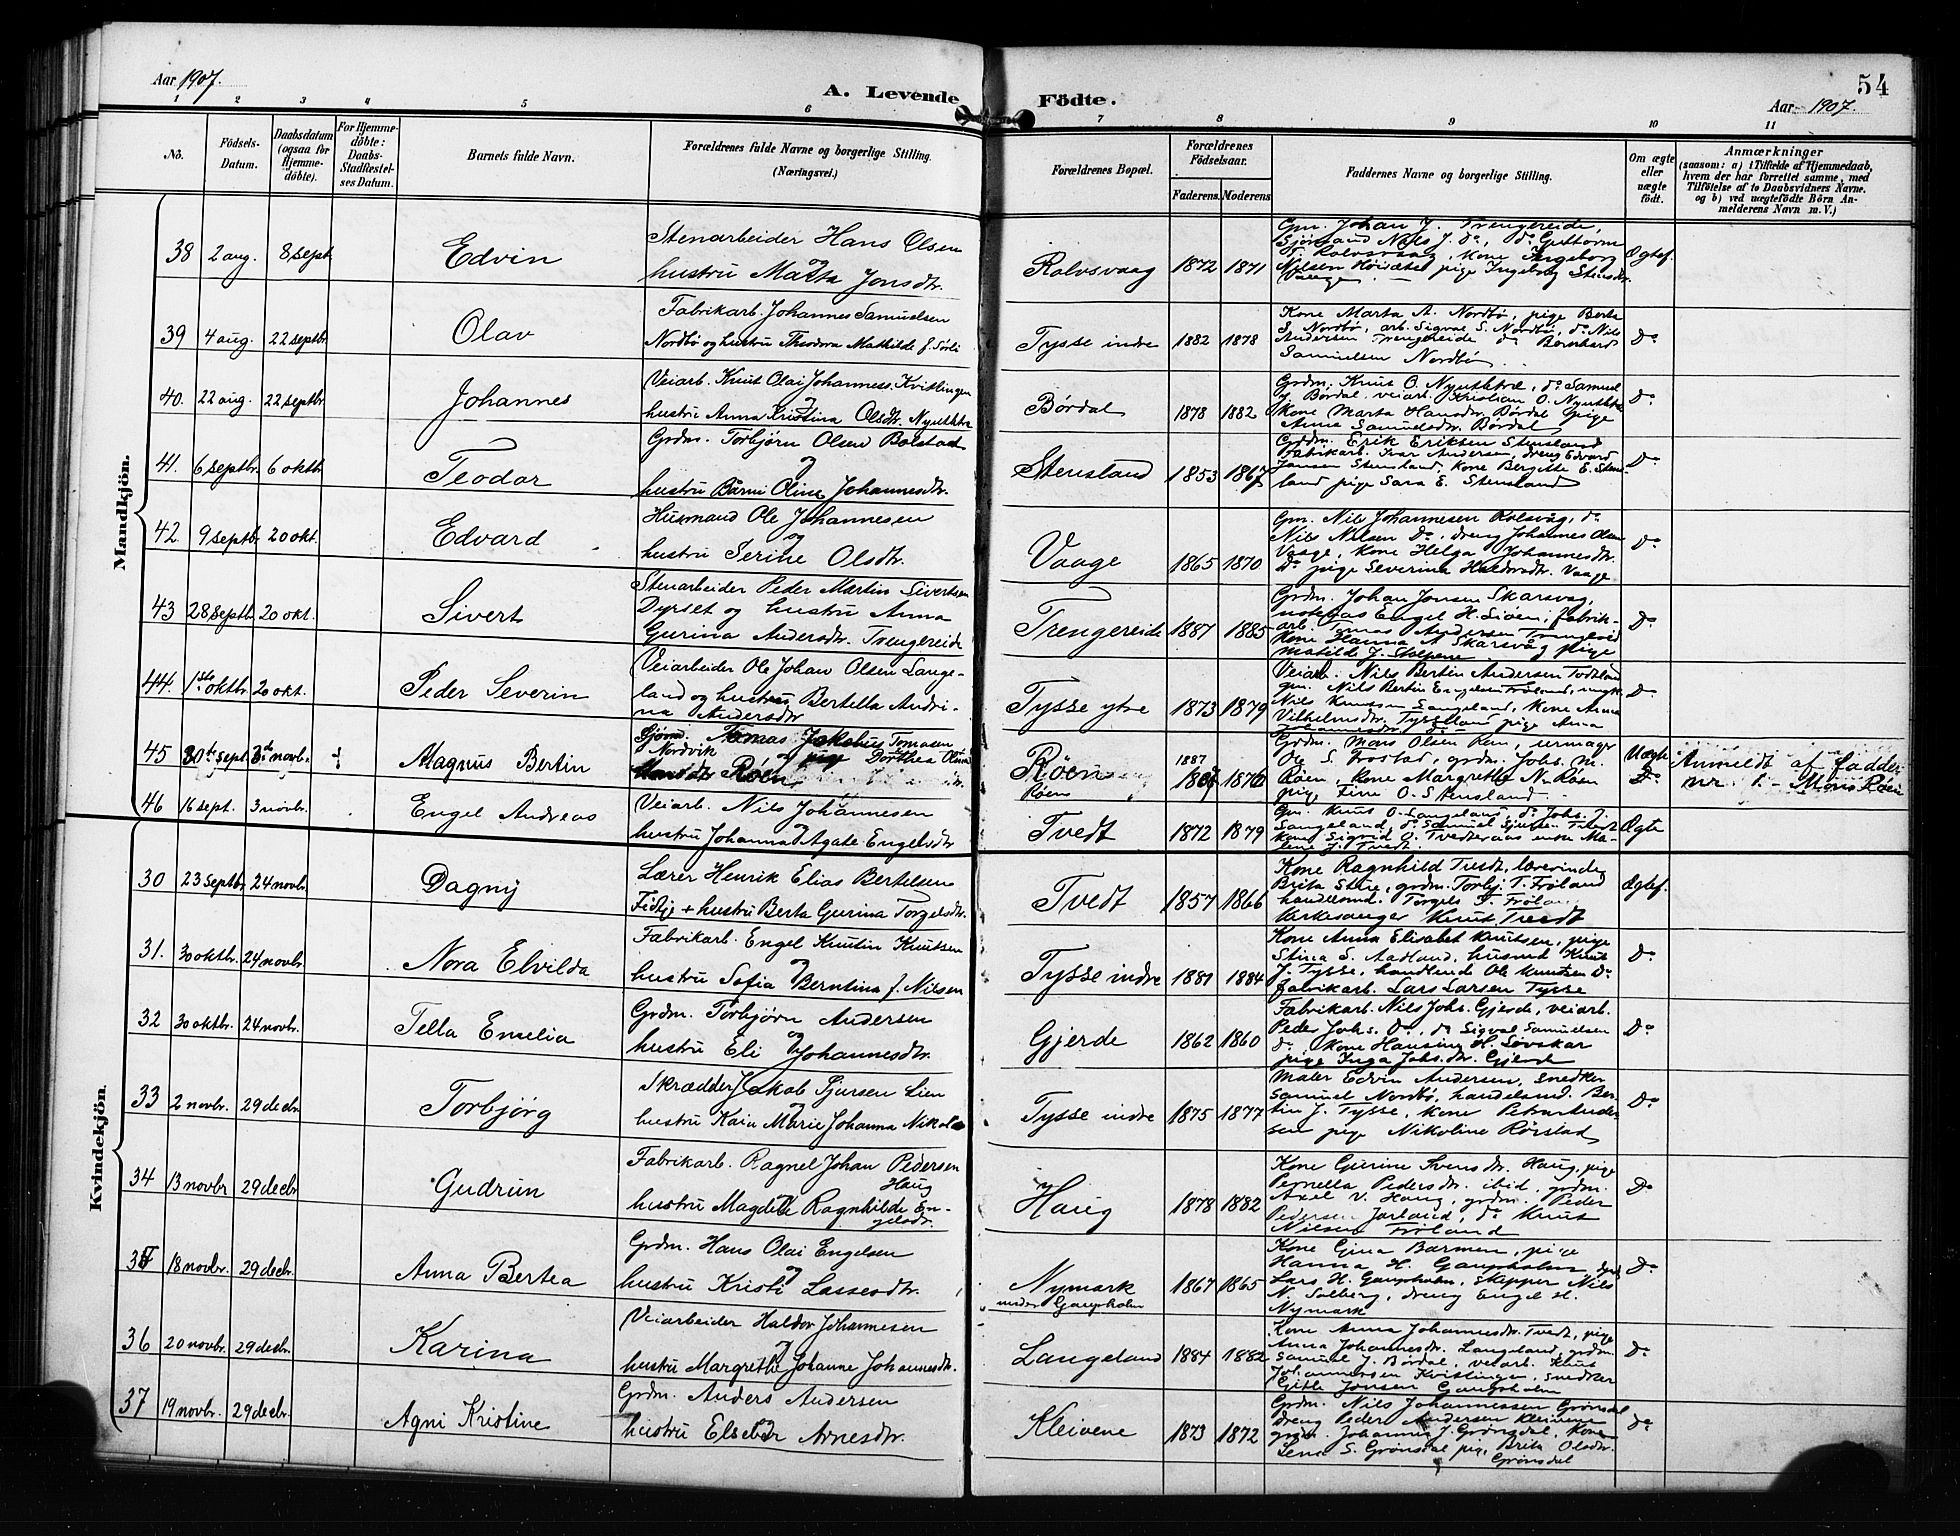 Aar 1907.
A. Levende Födte.
Aar 1907.
54
1 2 3 4 5 6 7 8 9 10 11
No.
Födsels-Datum.
Daabsdatum (ogsaa for Hjemmedöbte).
For Hjemmedöbte: Daabs-Stadfæstelses Datum.
Barnets fulde Navn.
Forældrenes fulde Navne og borgerlige Stilling. (Næringsvei.)
Forældrenes Bopæl.
Forældrenes Födselsaar.
Faderens. Moderens.
Faddernes Navne og borgerlige Stilling.
Om ægte eller uægte födt.
Anmærkninger
(saasom: a) i Tilfælde af Hjemmedaab, hvem der har forrettet samme, med Tilföielse af to Daabsvidners Navne. og b) ved uægtefödte Börn Anmelderens Navn m. V.)
Mandkjön.
38 2 aug. 8 sept. Edvin
Stenarbeider Hans Olsen
og
hustru Marta Jonsdtr.
Rolvsvaag 1872 1871
Gm. Johan J. Trengereide,
Sjömand Nils J. do, do Guttorm
T. Rolvsvaag, Kone Ingeborg
Nilsen Høisæter, pige Ingeborg Stensdtr.
Vaage
Ægtef.
39 4 aug. 22 septbr. Olav
Fabrikarb. Johannes Samuelsen
Nordbø og hustru Theodora Mathilde f. Sørli
Tysse indre 1882 1878
Kone Marta A. Nordbø, pige Berta
S. Nordbø, arb. Sigval S. Nordbø, do Nils
Andersen Trengereide do Bernhard
Samuelsen Nordbø
Do
40. 22 aug. 22 septbr. Johannes
Veiarb. Knut Olai Johanness. Kvitlingen
og
hustru Anna Kristina Olsdtr.
Børdal 1878 1882
Grdm. Knut O. do Samuel
J. Børdal, veiarb. Kristian O.
Kone Marta Hansdtr. Børdal pige
Anna Samuelsdtr. Børdal
Do
41. 6 septbr. 6 oktb. Teodor
Grdm. Torbjørn Olsen Bolstad
og
hustru Oline Johannesdtr.
Stensland 1853 1867
Grdm. Erik Eriksen Stensland
Fabrikarb. Ivar Andersen, dreng Edvard
Jansen Stensland, Kone Bergitte E. Stens-
land pige Sara E. Stensland
Do
42 9 septb. 20 okt. Edvard
Husmand Ole Johannesen
og
hustru Serine Olsdtr.
Vaage 1865 1870
Gm. Nils Johannesen Rolsvåg, do
Nils Nilsen Do, dreng Johannes Olsen
Vaage, Kone Helga Johannesdtr.
Do pige Severina Haldorsdtr. Vaage
Do
43 28 septb. 20 okt. Sivert
Stenarbeider Peder Martin Sivertsen
Dyrset og hustru Anna
Gurina Andersdtr. Trengereide
Trengereide 1887 1885
Grdm. Johan Jonsen Skarsvag,
Engel H. Sioen, fabrik-
arb. Tomas Andersen Trengereid
Kone Hanna A. Skarsvåg pige
Matilde J. Stolpene
Do
44. 1ste oktb. 20 okt. Peder Severin
Veiarbeider Ole Johan Olsen Lange-
land og hustru Bertella Andri-
na Andersdtr
Tysse ytre 1873 1879
Veiarb. Nils Bertin Andersen
gm. Nils Bertin Engelsen Frøland,
Nils Knutsen Langeland, Kone Anna
Vilhelmsdtr. Tysseland pige Anna
Do
45 30te sept. 3die novb. Magnus Bertin
Tomas Jakobus Tomasen
Nordvik og pige Dorthea Olina
Monsdtr. Røen
Røen
Røen 1887 1870
Grdm. Mons Olsen Røen, urmager
Ole S. Frostad, grdm. Johs. M.
Røen, Kone Margrethe N. Røen
pige Fine O. Stensland
Uægte
Do
Anmeldt af fadder
nr. 1. - Mons Røen
46 16 sept. 3 novbr. Engel Andreas
Veiarb. Nils Johannesen
og
hustru Johanna Agate Engelsdtr
Tvedt 1872 1879
Gm. Knut O. Langeland, do Johs. J.
Langeland, do Samuel Tvedt
Kone Sigrid O. Tvedteraas enke Ma-
lene J. Tvedt.
Ægte
Kvindekjön.
30 23 septbr 24 novbr. Dagny
Lærer Henrik Elias Bertelsen
Fidtje + hustru Berta Gurina Torgelsdtr.
Tvedt 1857 1866
Kone Ragnhild Tvedt, lærerinde
Brita Stue, grdm. Torbj. T. Frøland
handelsmd. Torgels T. Frølan.
Kirkesanger Knut Tvedt
Ægtef.
31. 30 oktbr. 24 novbr. Nora Elvilda
Fabrikarb. Engel Knutin Knutsen
og
hustru Sofia Berntina f. Nilsen
Tysse indre 1881 1884
Kone Anna Elisabet Knutsen, pige
Stina S. Aadland, husmd Knut
J. Tysse, handlende Ole Knutsen Do
fabrikarb. Lars Larsen Tysse
Do
32 30 oktbr. 24 novbr. Tella Emelia
Grdm. Torbjørn Andersen
og
hustru Eli Johannesdtr.
Gjerde 1862 1860
Fabrikarb. Nils Johs. Gjerde, veiarb.
Peder Johs. Do, do Sigval Samuelsen
do, Kone Hansine H. Løvskar
pige Inga Johs.dtr. Gjerde
Do
33 2 novbr. 29 decbr. Torbjørg
Skrædder Jakob Sjursen Lien
og
hustru Kaia Marie Johanna
Tysse indre 1875 1877
Maler Edvin Andersen, snedker
Samuel Nordbø, handelsmd. Ber-
tin J. Tysse, Kone Petra Ander-
sen pige Nikoline Rørstad
Do
34 13 novbr 29 decbr. Gudrun
Fabrikarb. Ragnel Johan Pedersen
Haug
og
hustru Magdela Ragnhilde En-
gelsdtr.
Haug 1878 1882
Kone Gurine Svensdtr. Haug, pige
Pernella Pedersdtr. ibid, grdm.
Axel V. Haug, grdm. Peder
Pedersen Jarland, do Knut
Nilsen Frøland
Do
35 18 novbr. 29 decbr. Anna Bertea
Grdm. Hans Olai Engelsen
og
hustru Kristi Lassesdtr.
Nymark
under Gaupholm 1867 1865
Kone Gina Barmen, pige
Hanna H. Gaupholm,
Lars H. Gaupholm, skipper Nils
N. Solberg, dreng Engel H.
Nymark
Do
36 20 novbr. 29 decbr. Karina
Veiarbeider Haldor Johannesen
og
hustru Margrethe Johanne Johannesdtr.
Langeland 1884 1882
Kone Anna Johannesdtr. Tvedt, pige
Anna Johannesdtr. Langeland, grdm.
Samuel J. Børdal, veiarb. Knut
Johannessen Kvitlingen, snedker
Gitle Jonsen Gaupholm
Do
37 19 novbr. 29 decbr. Agni Kristine
Grdm. Anders Andersen
og
hustru Elsebe Arnesdtr.
Kleivene 1873 1872
Grdm. Nils Johannessen Grønsdal
dreng Peder Andersen Kleivene
grdm. Johannes J. Grønsdal, Kone
Lena S. Grønsdal pige Brita Olsdtr.
Grønsdal
Do